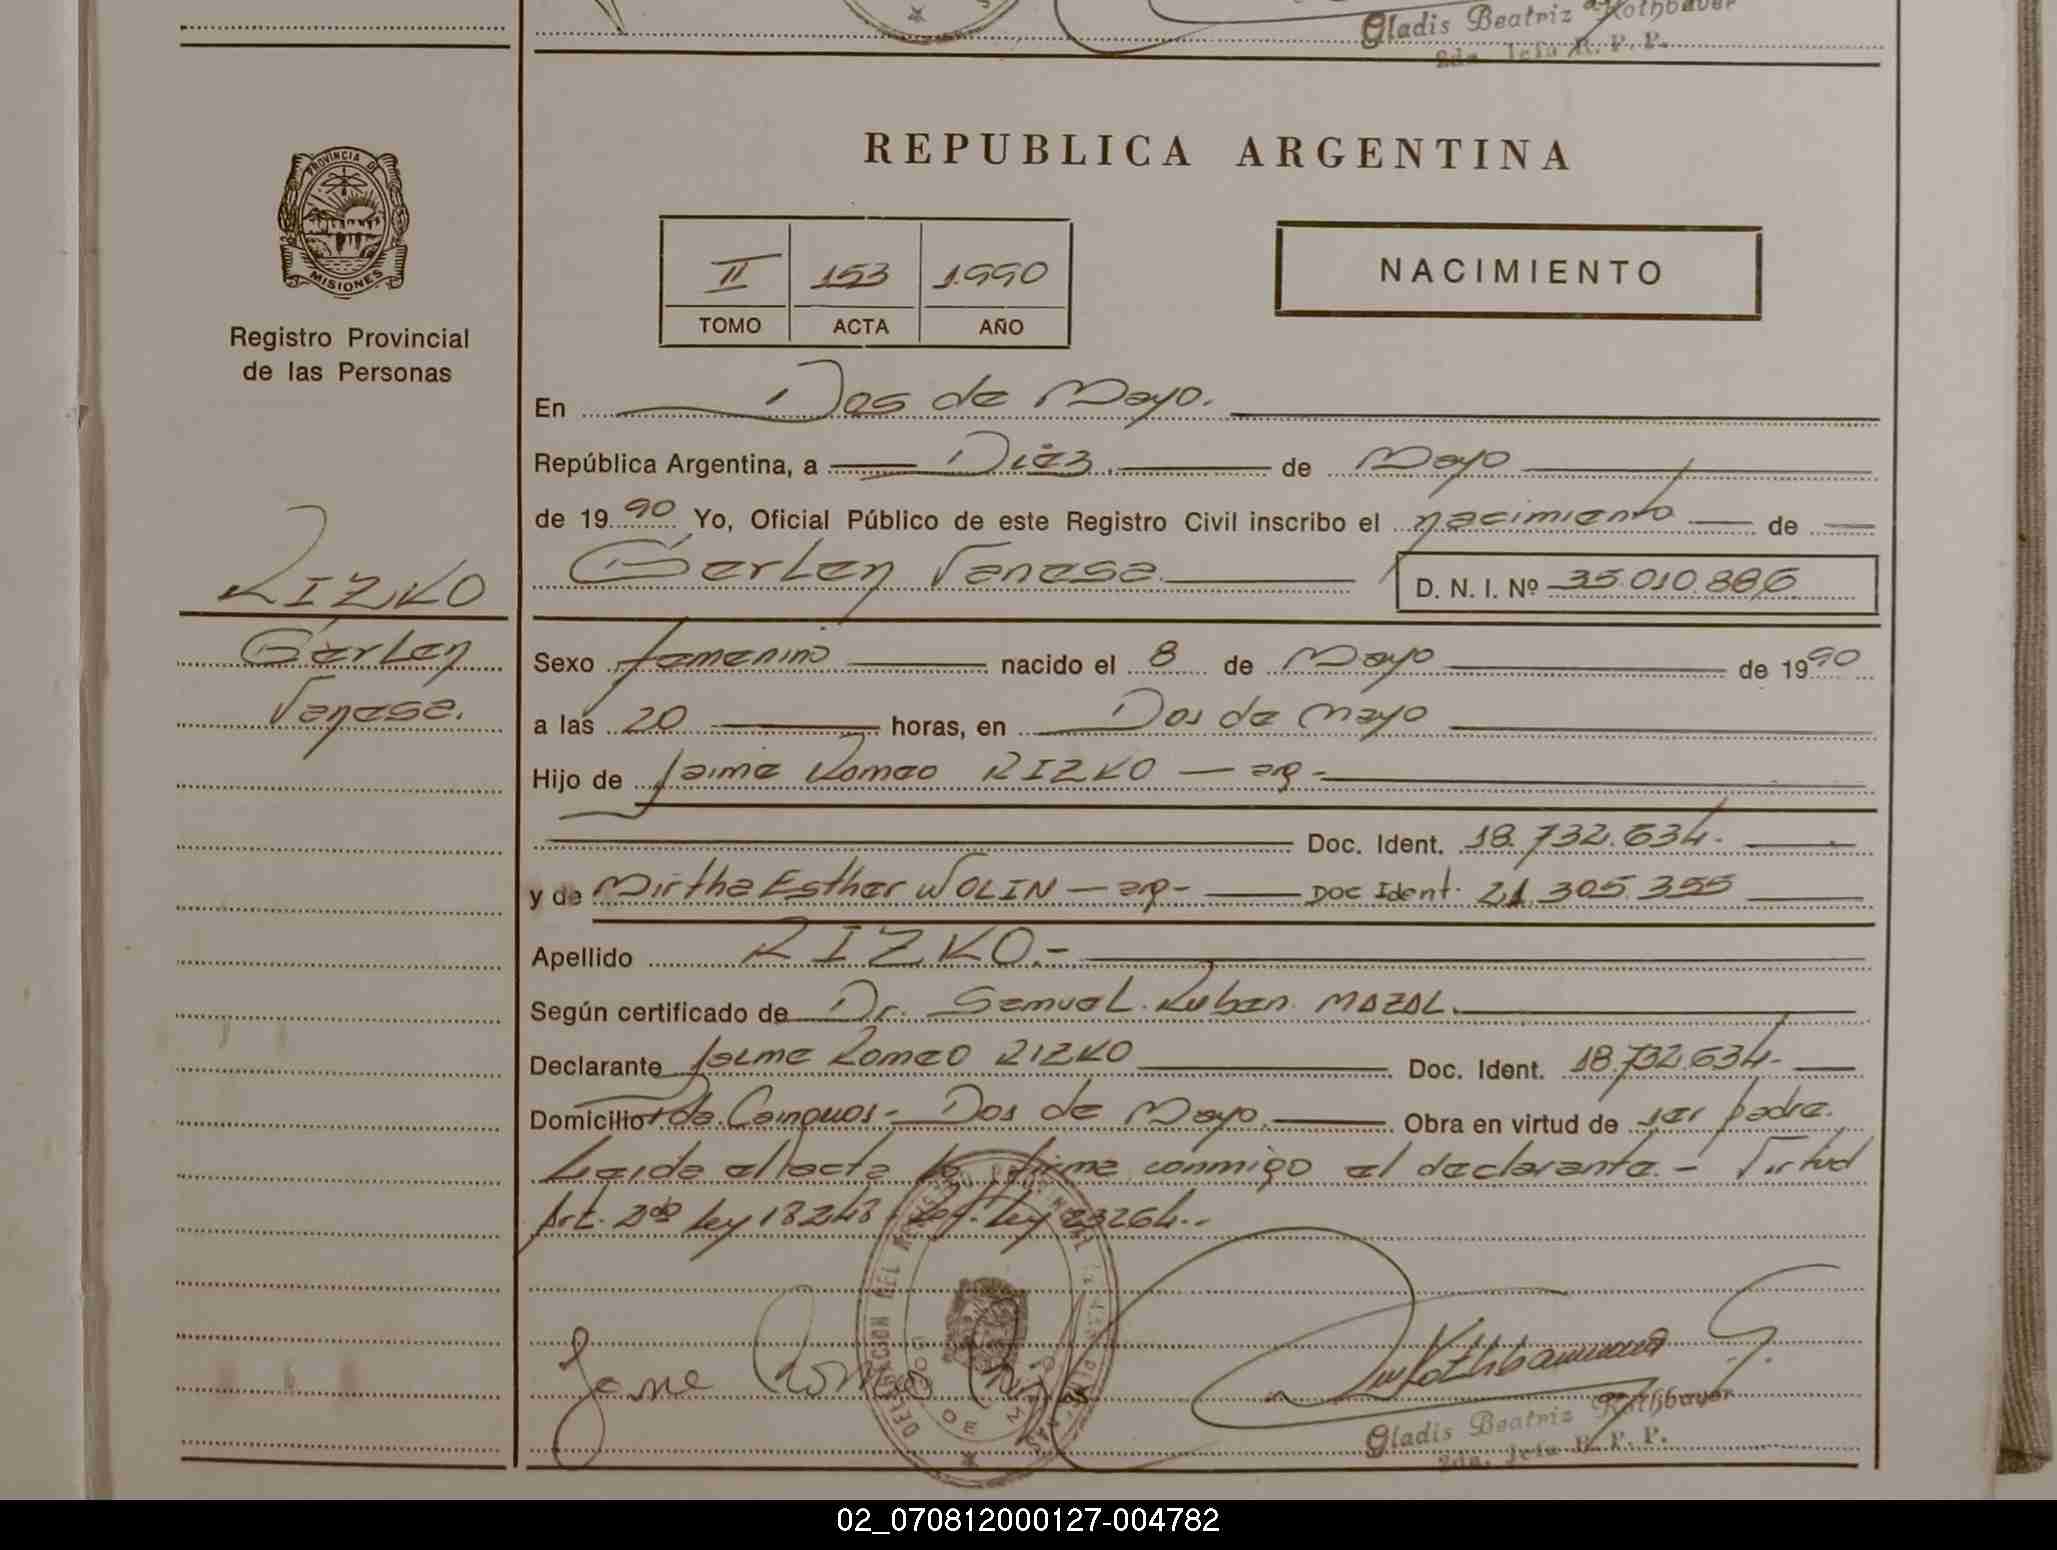 Gladis Beatriz Rothbauer
2da. Jefa R. P. P.
PROVINCIA DE
MISIONES
Registro Provincial
de las Personas
REPUBLICA ARGENTINA
II 153 1990
TOMO ACTA AÑO
NACIMIENTO
En Dos de Mayo.
República Argentina, a Diez de Mayo
de 1990 Yo, Oficial Público de este Registro Civil inscribo el nacimiento de
Gerlen Vanesa D. N. I. Nº 35.010.886
RIZKO
Gerlen
Vanesa.
Sexo femenino nacido el 8 de Mayo de 1990
a las 20 horas, en Dos de Mayo
Hijo de Jaime Romeo RIZKO — arg -
Doc. Ident. 18.732.634.
y de Mirtha Esther WOLIN — arg - Doc Ident. 21.305.355
Apellido RIZKO.-
Según certificado de Dr. Samuel Ruben MAZAL.
Declarante Jaime Romeo RIZKO Doc. Ident. 18.732.634-
Domicilio Dos de Mayo. Obra en virtud de ser padre.
Leida el acta la firma conmigo el declarante.- Virtud
Art. 2do ley 18248 ley 23264..
Gladis Beatriz Rothbauer
2da. Jefa R. P. P.
02_070812000127-004782